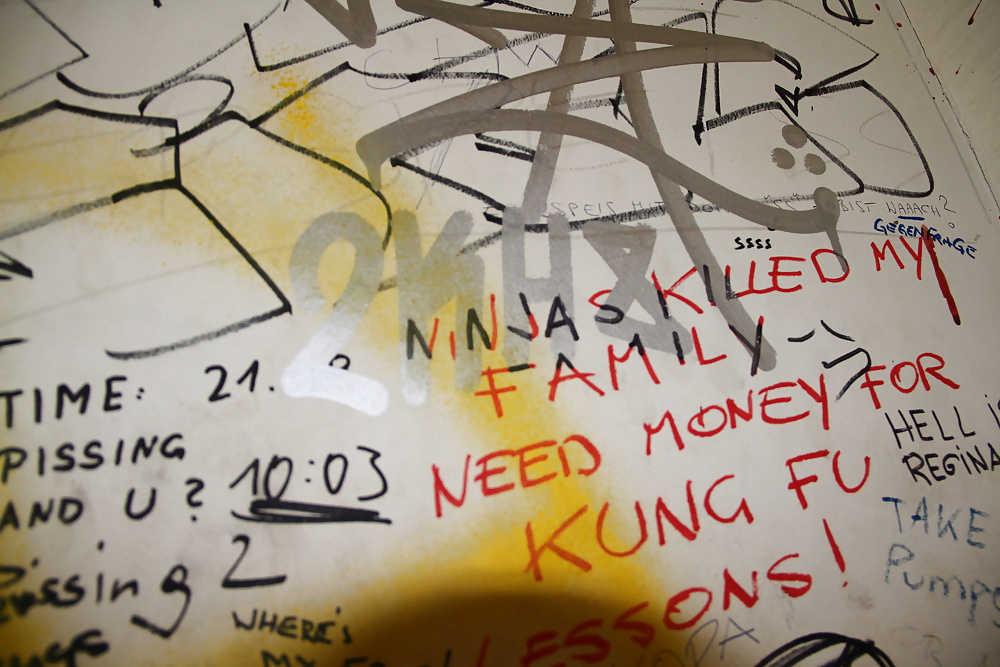 BIST WAAACH?
GEGENFRAGE
ssss
2KHz
NINJAS KILLED MY
FAMILY
NEED MONEY FOR
KUNG FU
LESSONS!
TIME: 21.
PISSING
AND U ? 10:03
Pissing 2
WHERE'S
MY
HELL is
REGINA
TAKE
Pumps